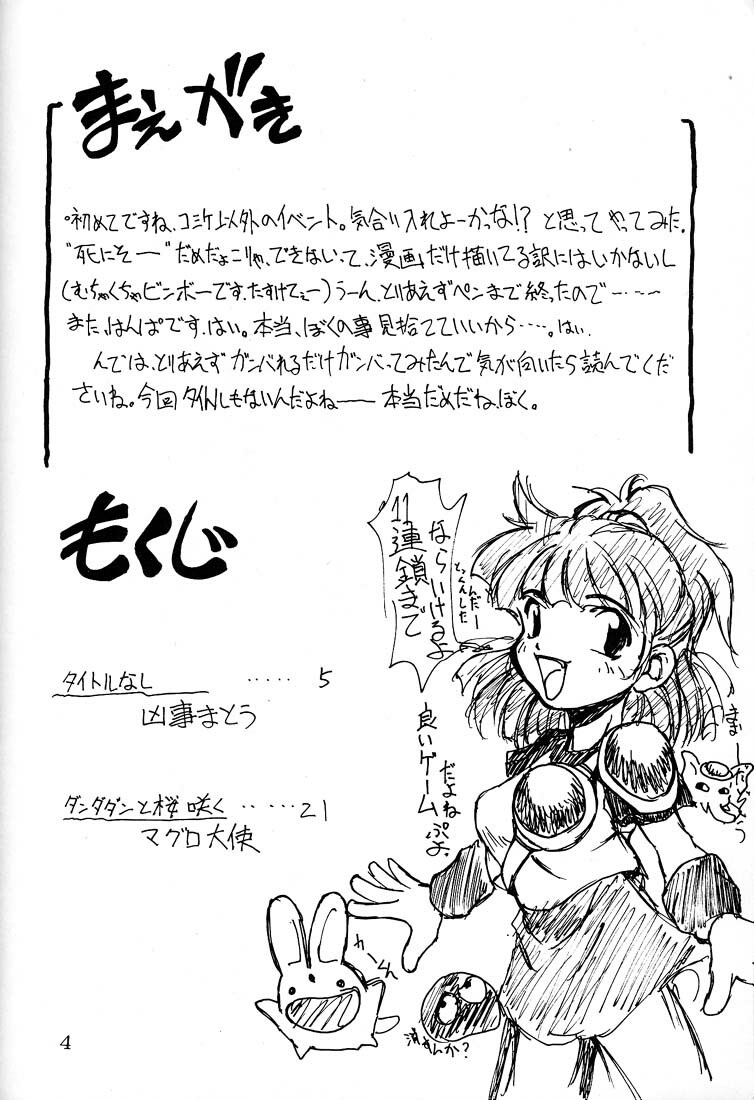 まえがき
○初めてですね、コミケ以外のイベント。気合い入れよーかな!?と思ってやってみた。
"死にそー"だめだょこりゃ、できないって、漫画だけ描いてる訳にはいかないし
(むちゃくちゃビンボーです、たすけてぇー)うーん、とりあえずペンまで終ったので────
また、はんぱです、はい。本当、ぼくの事見捨てていいから‥‥。はい、
んでは、とりあえずガンバれるだけガンバってみたんで気が向いたら読んでくだ
さいね。今回タイトルもないんだよね──本当だめだね、ぼく。
もくじ
タイトルなし ‥‥‥ 5
凶事まとう
ダンダダンと桜咲く ‥‥‥ 21
マグロ大使
11連鎖まで
ならいけるよ
良いゲーム
だよね
ぷよ。
わーい
済せんか?
4